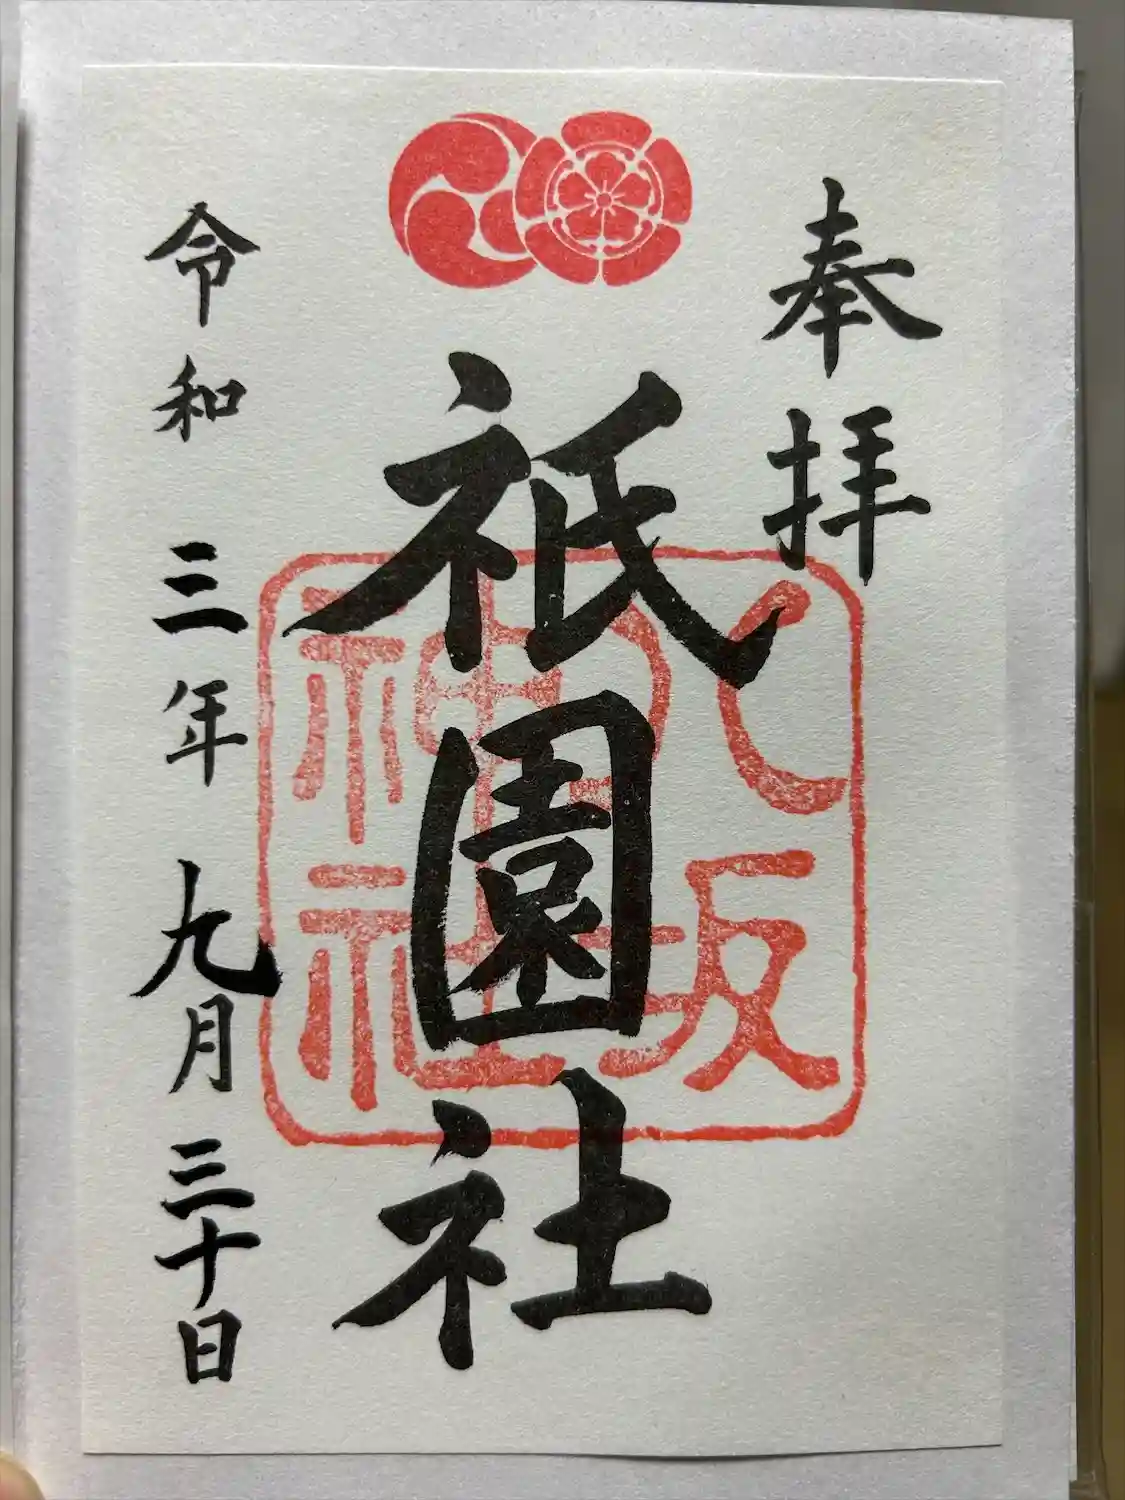 奉拝
祇園社
八坂
神社
令和三年九月三十日